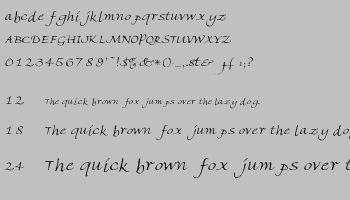 abcdefghijklmnopqrstuvwxyz
ABCDEFGHIJKLMNOPQRSTUVWXYZ
0123456789
12 The quick brown fox jumps over the lazy dog.
18 The quick brown fox jumps over the lazy do
24 The quick brown fox jumps over t